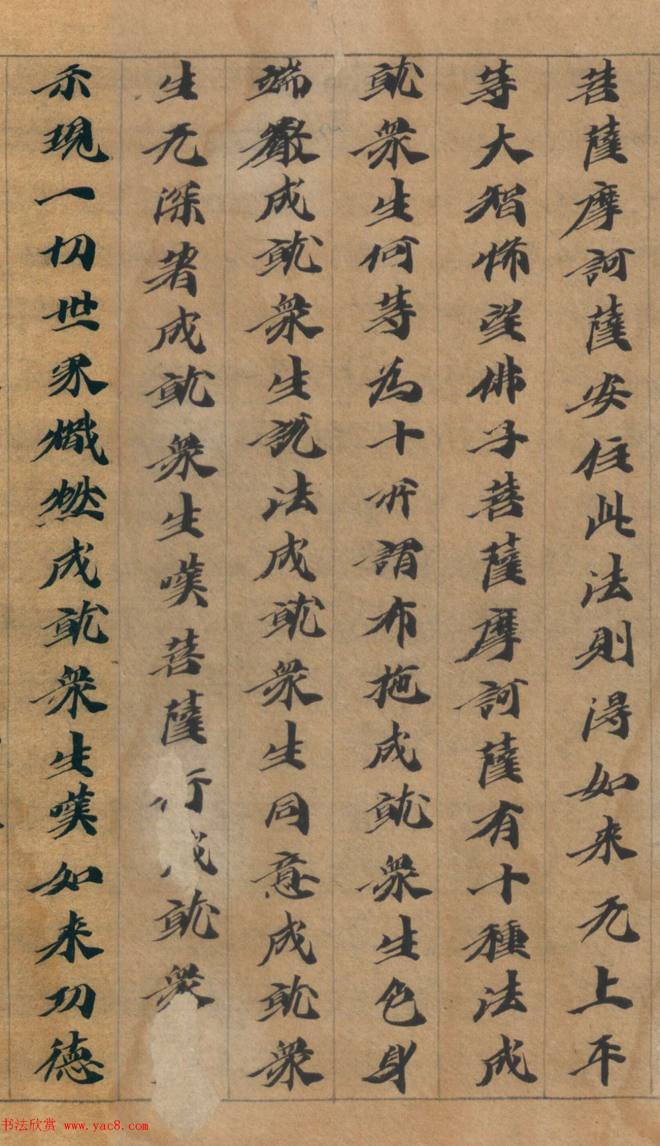 菩薩摩訶薩安住此法則得如来无上平
等大智悕望佛子菩薩摩訶薩有十種法成
就衆生何等為十所謂布施成就衆生色身
端嚴成就衆生説法成就衆生同意成就衆
生无深著成就衆生嘆菩薩行成就衆
示現一切世界熾然成就衆生嘆如来功德
书法欣赏 www.yac8.com